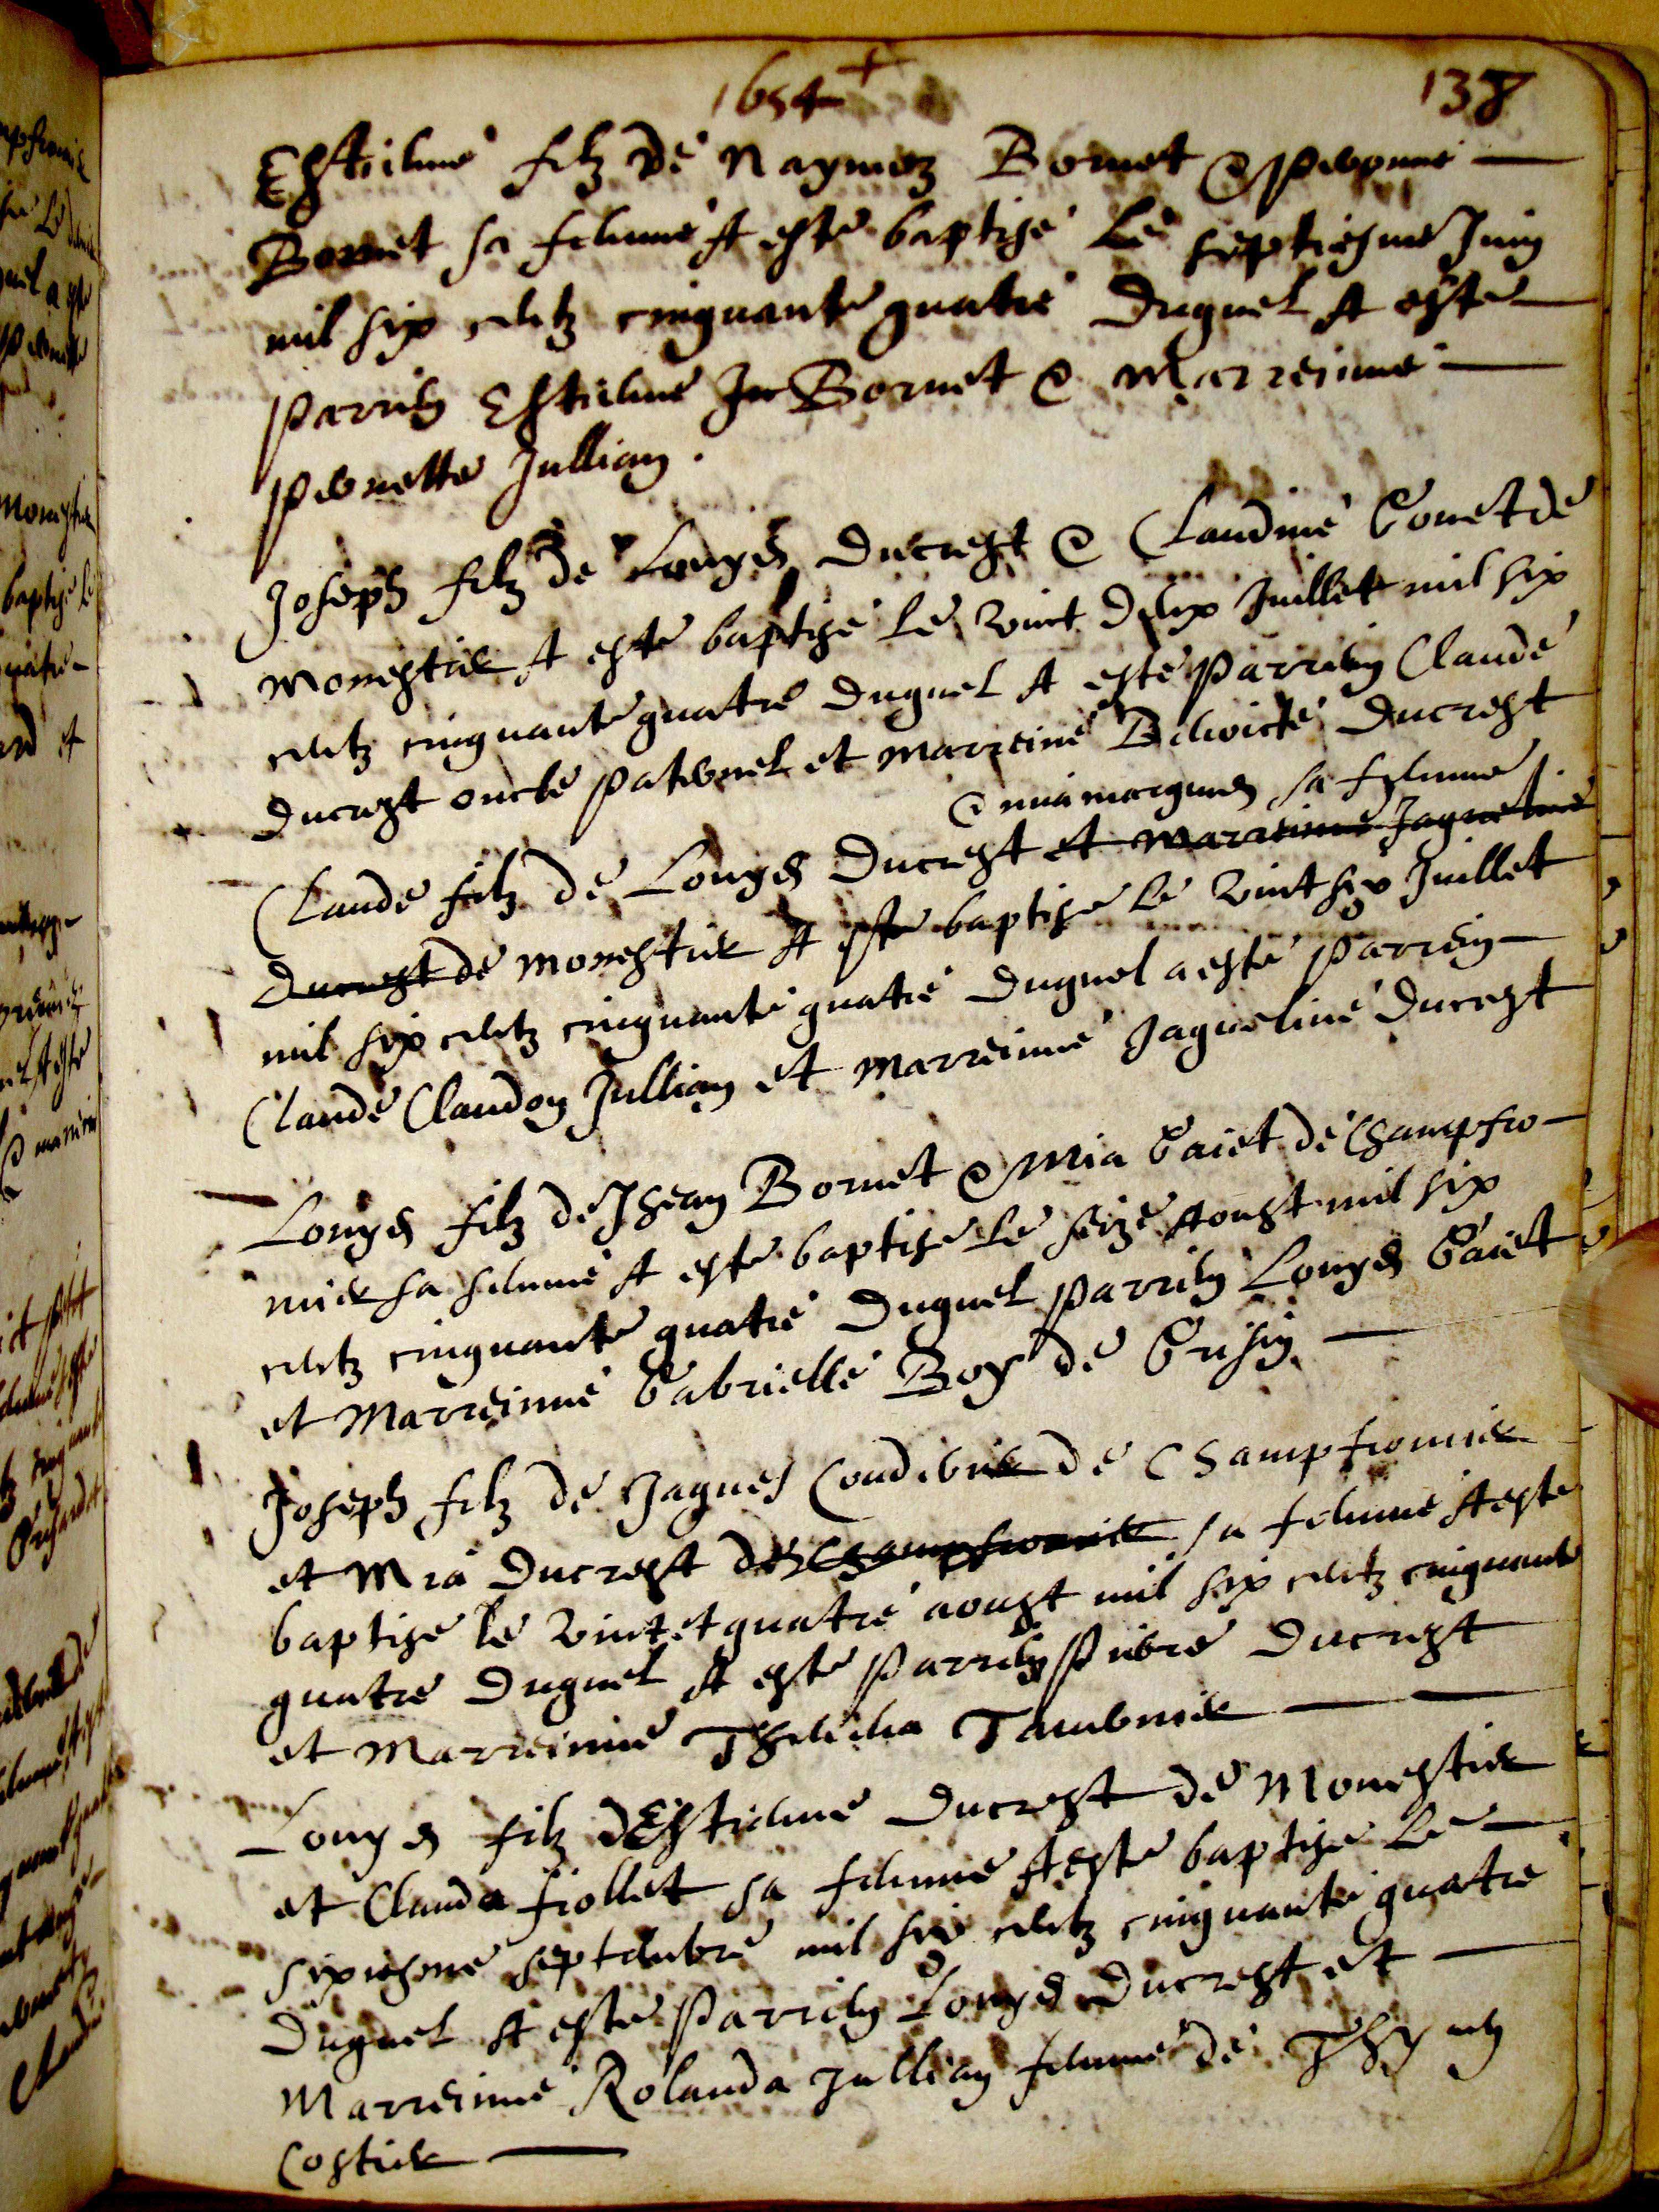 1654 +
138
Estienne filz de Naymoz Bornet & Pernonne
Bornet sa femme A esté baptisé Le septiesme Juin
mil six centz cinquante quatre Duquel A esté
Parrin Estienne Bornet & Marreinne
Pernette Jullian.
Joseph filz de Louys Ducrest & Claudine Gonet de
Monestier A esté baptisé le vint Deux Juillet mil six
centz cinquante quatre Duquel A esté Parrein Claude
Ducrest oncle Paternel et Marreine Ducrest
& mia sa femme
Claude filz de Louys Ducrest et Marreinne Jaqueline
Ducrest de Monestier A esté baptisé le vint six Juillet
mil six centz cinquante quatre Duquel a esté Parrein
Claude Claudoz Jullian et Marreinne Jaqueline Ducrest
Louys filz de Jhean Bornet & Mia Gaiet de Champfro-
mier sa femme A esté baptisé Le seize Aoust mil six
centz cinquante quatre Duquel Parrein Louys Gaiet
et Marreinne Gabrielle Boy de
Joseph filz de Jaques Coudurier de Champfromier
et Mia Ducrest de Champfromier sa femme A esté
baptisé le vint et quatre aoust mil six centz cinquante
quatre Duquel A esté Parrein Pierre Ducrest
et Marreinne Tavernier
Louys filz dEstienne Ducrest de Monestier
et Clauda fiollet sa femme A esté baptisé Le
sixiesme septembre mil six centz cinquante quatre
Duquel A esté Parrein Louys Ducrest et
Marreinne Rolanda Jullian femme de
Costier